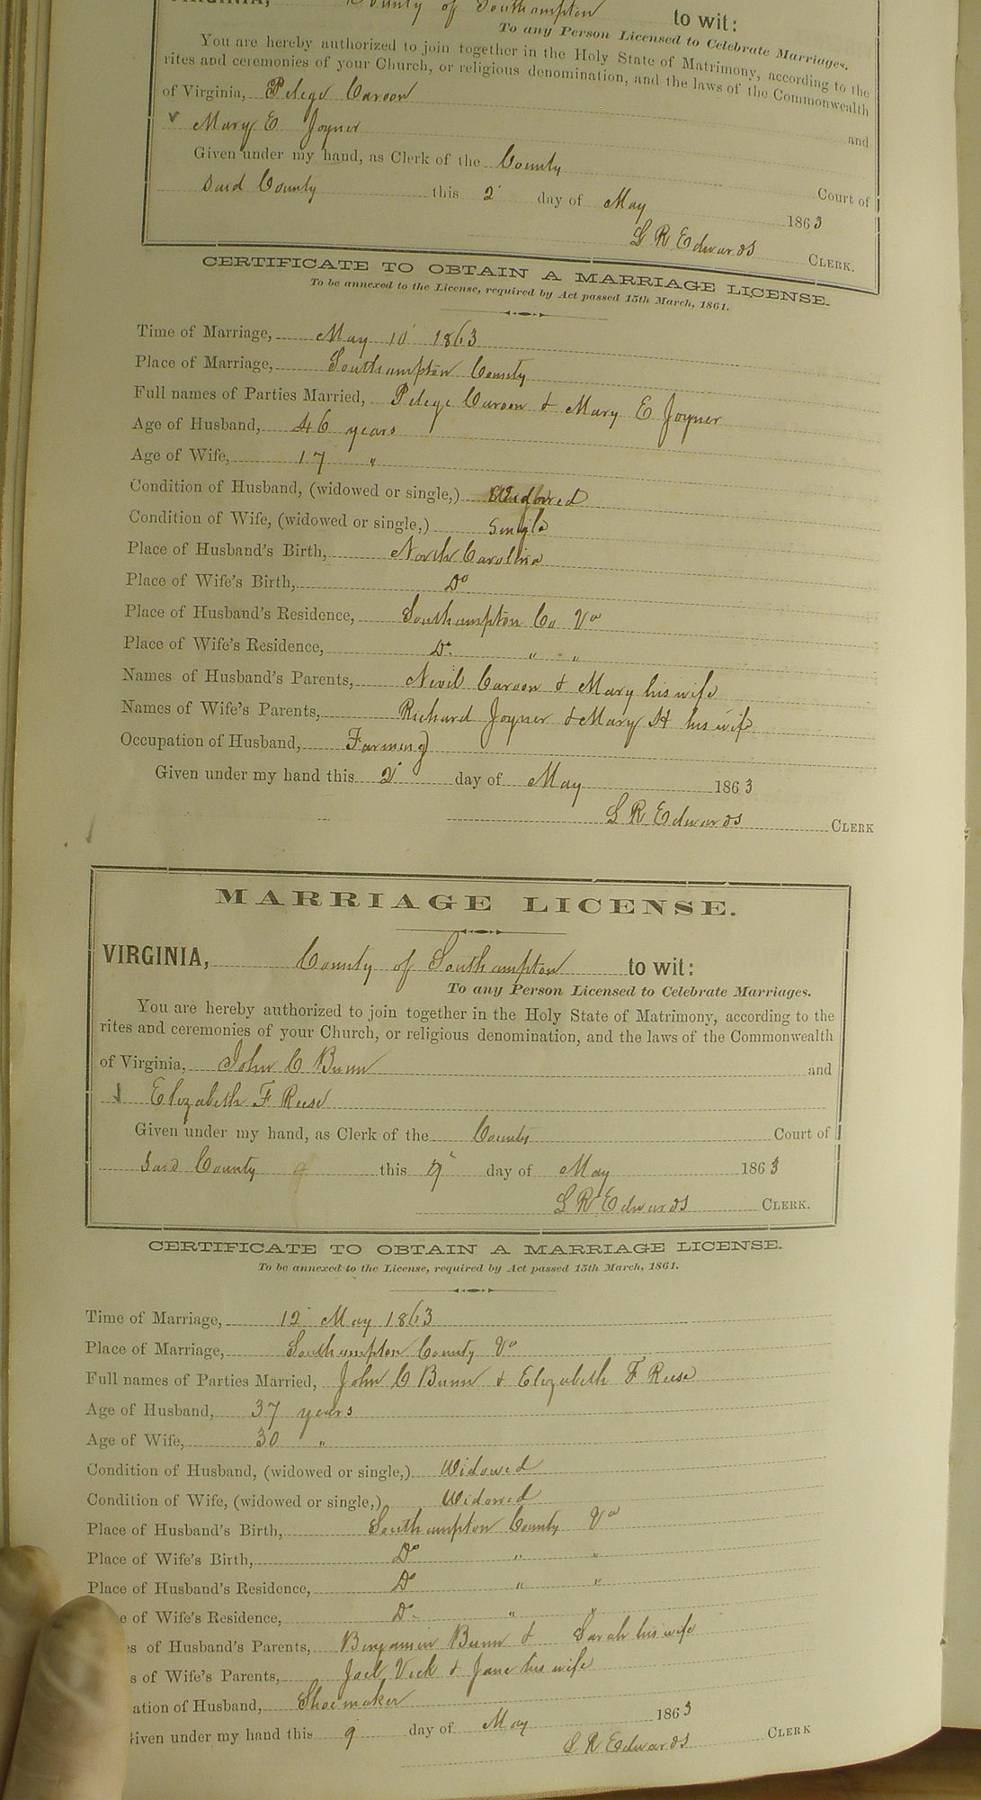 VIRGINIA, County of Southampton to wit:
To any Person Licensed to Celebrate Marriages.
You are hereby authorized to join together in the Holy State of Matrimony, according to the
rites and ceremonies of your Church, or religious denomination, and the laws of the Commonwealth
of Virginia, Pelege Carson and
Mary E Joyner
Given under my hand, as Clerk of the County Court of
Said County this 2 day of May 1863
L R Edwards CLERK.
CERTIFICATE TO OBTAIN A MARRIAGE LICENSE.
To be annexed to the License, required by Act passed 15th March, 1861.
Time of Marriage, May 10 1863
Place of Marriage, Southampton County
Full names of Parties Married, Pelege Carson & Mary E Joyner
Age of Husband, 46 years
Age of Wife, 17 "
Condition of Husband, (widowed or single,) Widowed
Condition of Wife, (widowed or single,) Single
Place of Husband's Birth, North Carolina
Place of Wife's Birth, Do
Place of Husband's Residence, Southampton Co Va
Place of Wife's Residence, Do " "
Names of Husband's Parents, Nevil Carson & Mary his wife
Names of Wife's Parents, Richard Joyner & Mary H his wife
Occupation of Husband, Farming
Given under my hand this 2 day of May 1863
L R Edwards CLERK
MARRIAGE LICENSE.
VIRGINIA, County of Southampton to wit:
To any Person Licensed to Celebrate Marriages.
You are hereby authorized to join together in the Holy State of Matrimony, according to the
rites and ceremonies of your Church, or religious denomination, and the laws of the Commonwealth
of Virginia, John C Bunn and
Elizabeth F Reese
Given under my hand, as Clerk of the County Court of
Said County this 9 day of May 1863
L R Edwards CLERK.
CERTIFICATE TO OBTAIN A MARRIAGE LICENSE.
To be annexed to the License, required by Act passed 15th March, 1861.
Time of Marriage, 12 May 1863
Place of Marriage, Southampton County Va
Full names of Parties Married, John C Bunn & Elizabeth F Reese
Age of Husband, 37 years
Age of Wife, 30 "
Condition of Husband, (widowed or single,) Widowed
Condition of Wife, (widowed or single,) Widowed
Place of Husband's Birth, Southampton County Va
Place of Wife's Birth, Do " "
Place of Husband's Residence, Do " "
e of Wife's Residence, Do " "
es of Husband's Parents, Benjamin Bunn & Sarah his wife
s of Wife's Parents, Joel Vick & Jane his wife
ation of Husband, Shoemaker
Given under my hand this 9 day of May 1863
L R Edwards CLERK